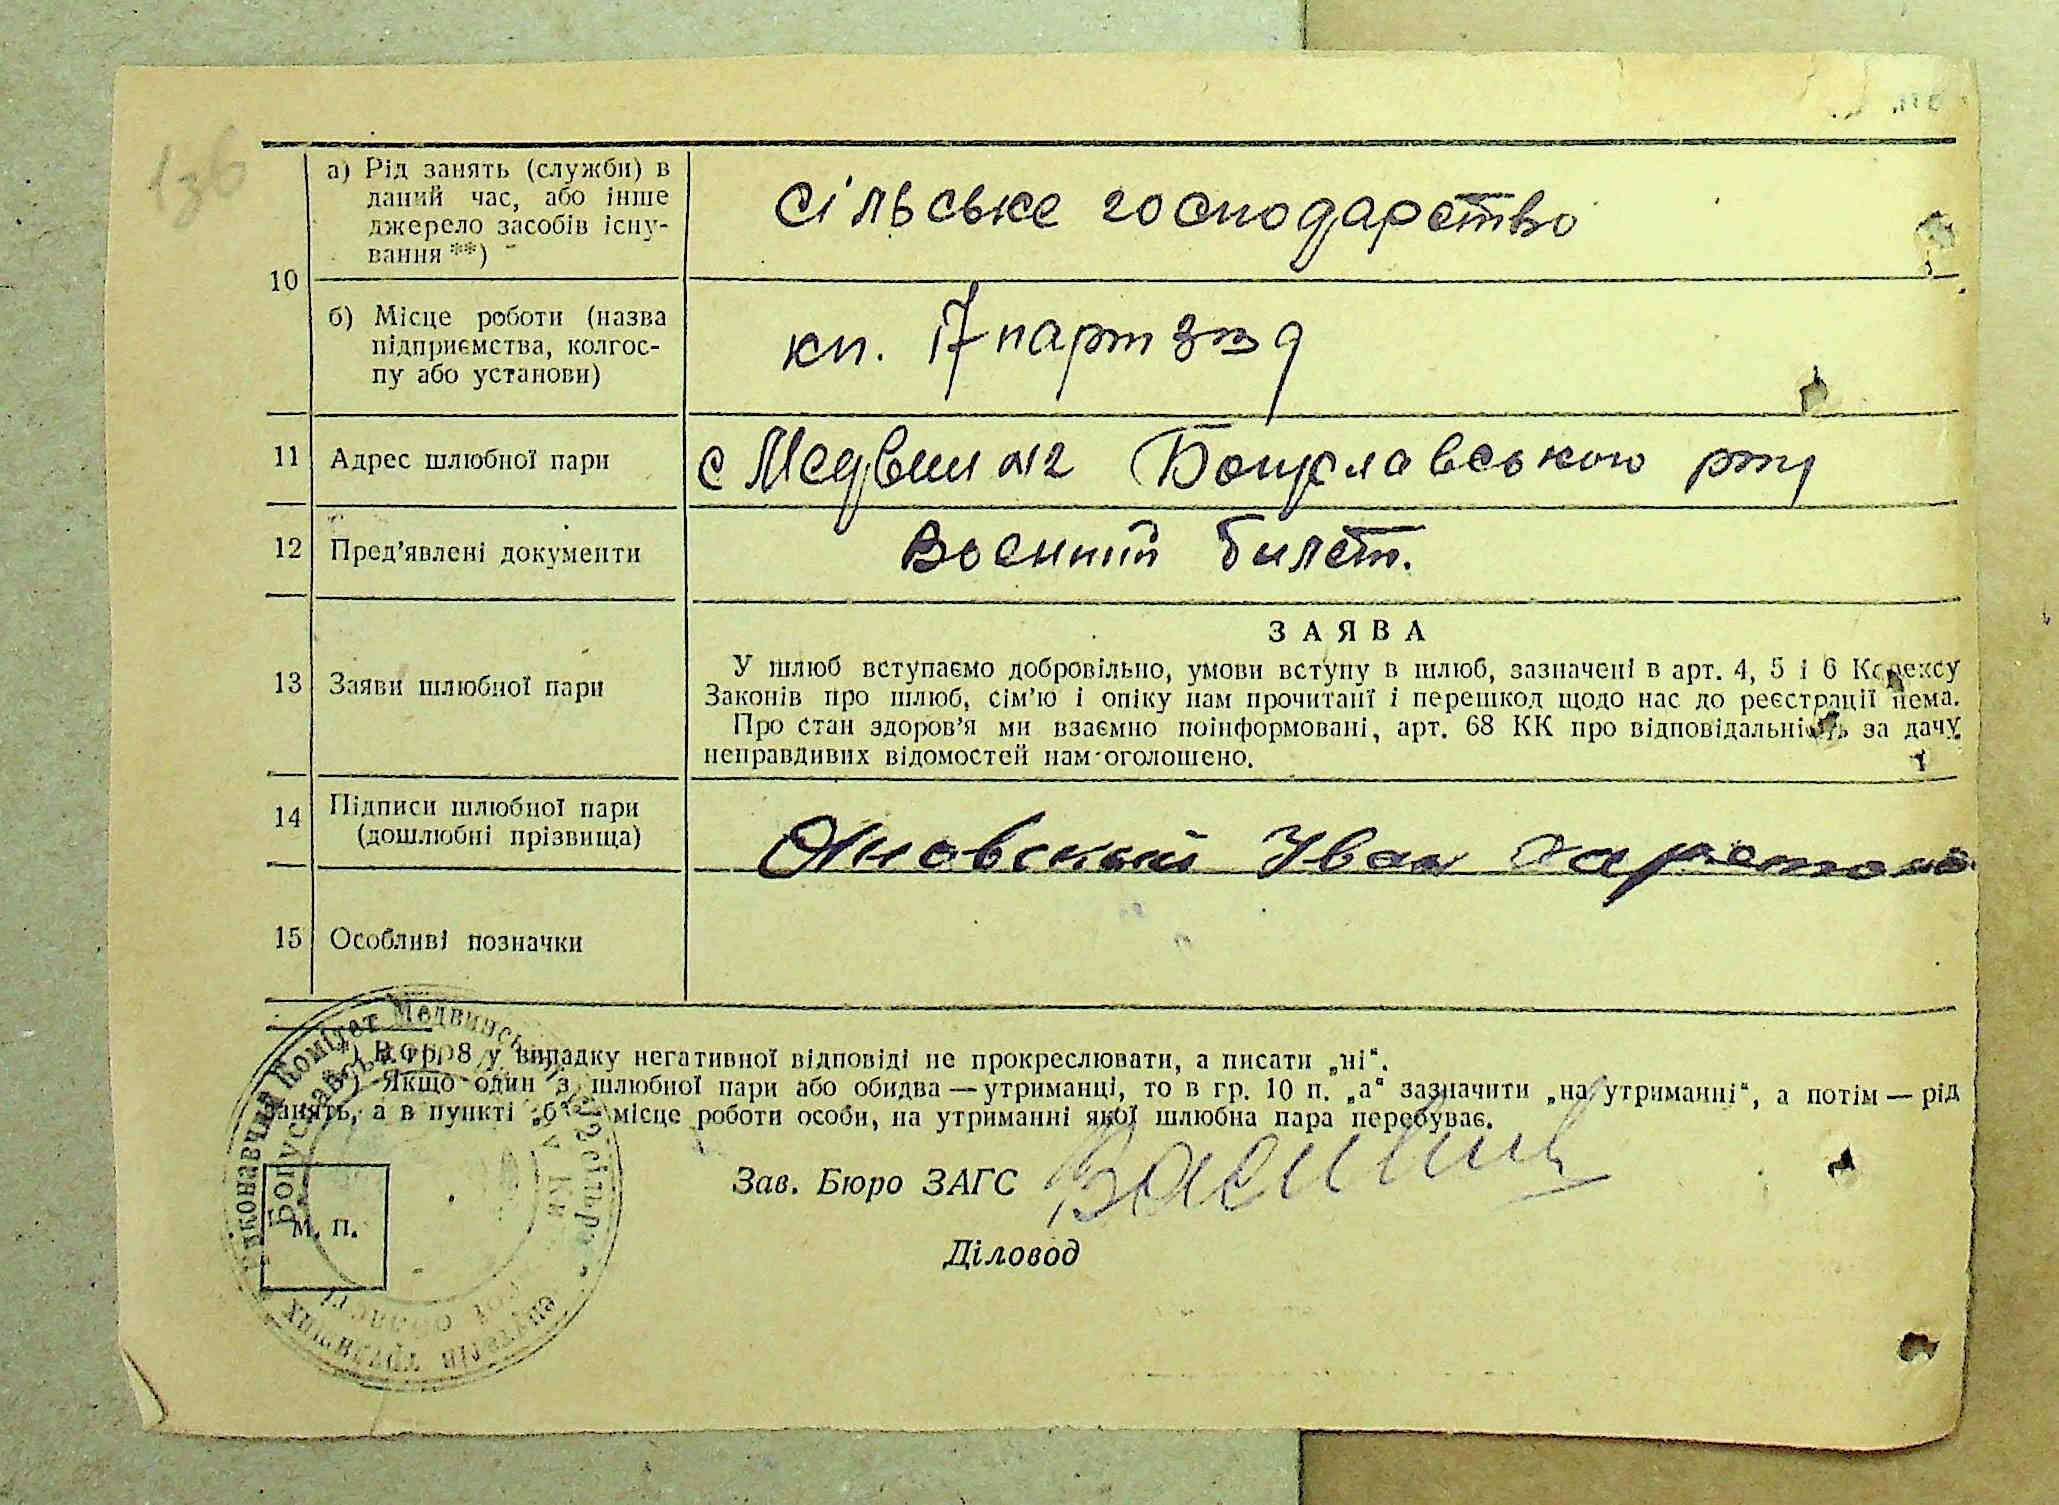 136
а) Рід занять (служби) в
даний час, або інше
джерело засобів існу-
вання **)
сільське господарство
10
б) Місце роботи (назва
підприємства, колгос-
пу або установи)
кп. 17 парт з'їзд
11 Адрес шлюбної пари с Медвин №2 Богуславського р-ну
12 Пред'явлені документи Воєнний билет.
13 Заяви шлюбної пари
ЗАЯВА
У шлюб вступаємо добровільно, умови вступу в шлюб, зазначені в арт. 4, 5 і 6 Кодексу
Законів про шлюб, сім'ю і опіку нам прочитані і перешкод щодо нас до реєстрації нема.
Про стан здоров'я ми взаємно поінформовані, арт. 68 КК про відповідальність за дачу
неправдивих відомостей нам оголошено.
14 Підписи шлюбної пари
(дошлюбні прізвища)
Яновський Иван
15 Особливі позначки
*) В гр. 8 у випадку негативної відповіді не прокреслювати, а писати „ні“.
**) Якщо один з шлюбної пари або обидва — утриманці, то в гр. 10 п. „а“ зазначити „на утриманні“, а потім — рід
занять, а в пункті „б“ місце роботи особи, на утриманні якої шлюбна пара перебуває.
Зав. Бюро ЗАГС
Діловод
М. П.
Виконавчий Комітет Медвинськ
Богуславськ
депутатів трудящих